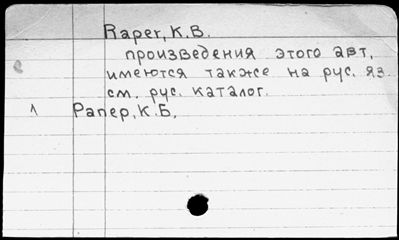 Raper, K.B.
произведения этого авт,
имеются также на рус. яз.
см. рус. каталог.
Рапер, К.Б.